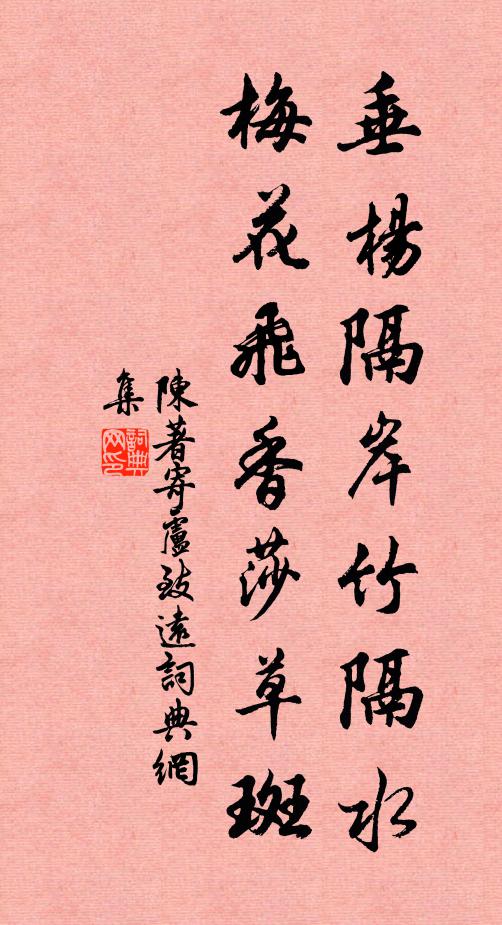 垂楊隔岸竹隔水
梅花飛香莎草斑
陳著寄盧致遠詞典網
集
詞典
网印